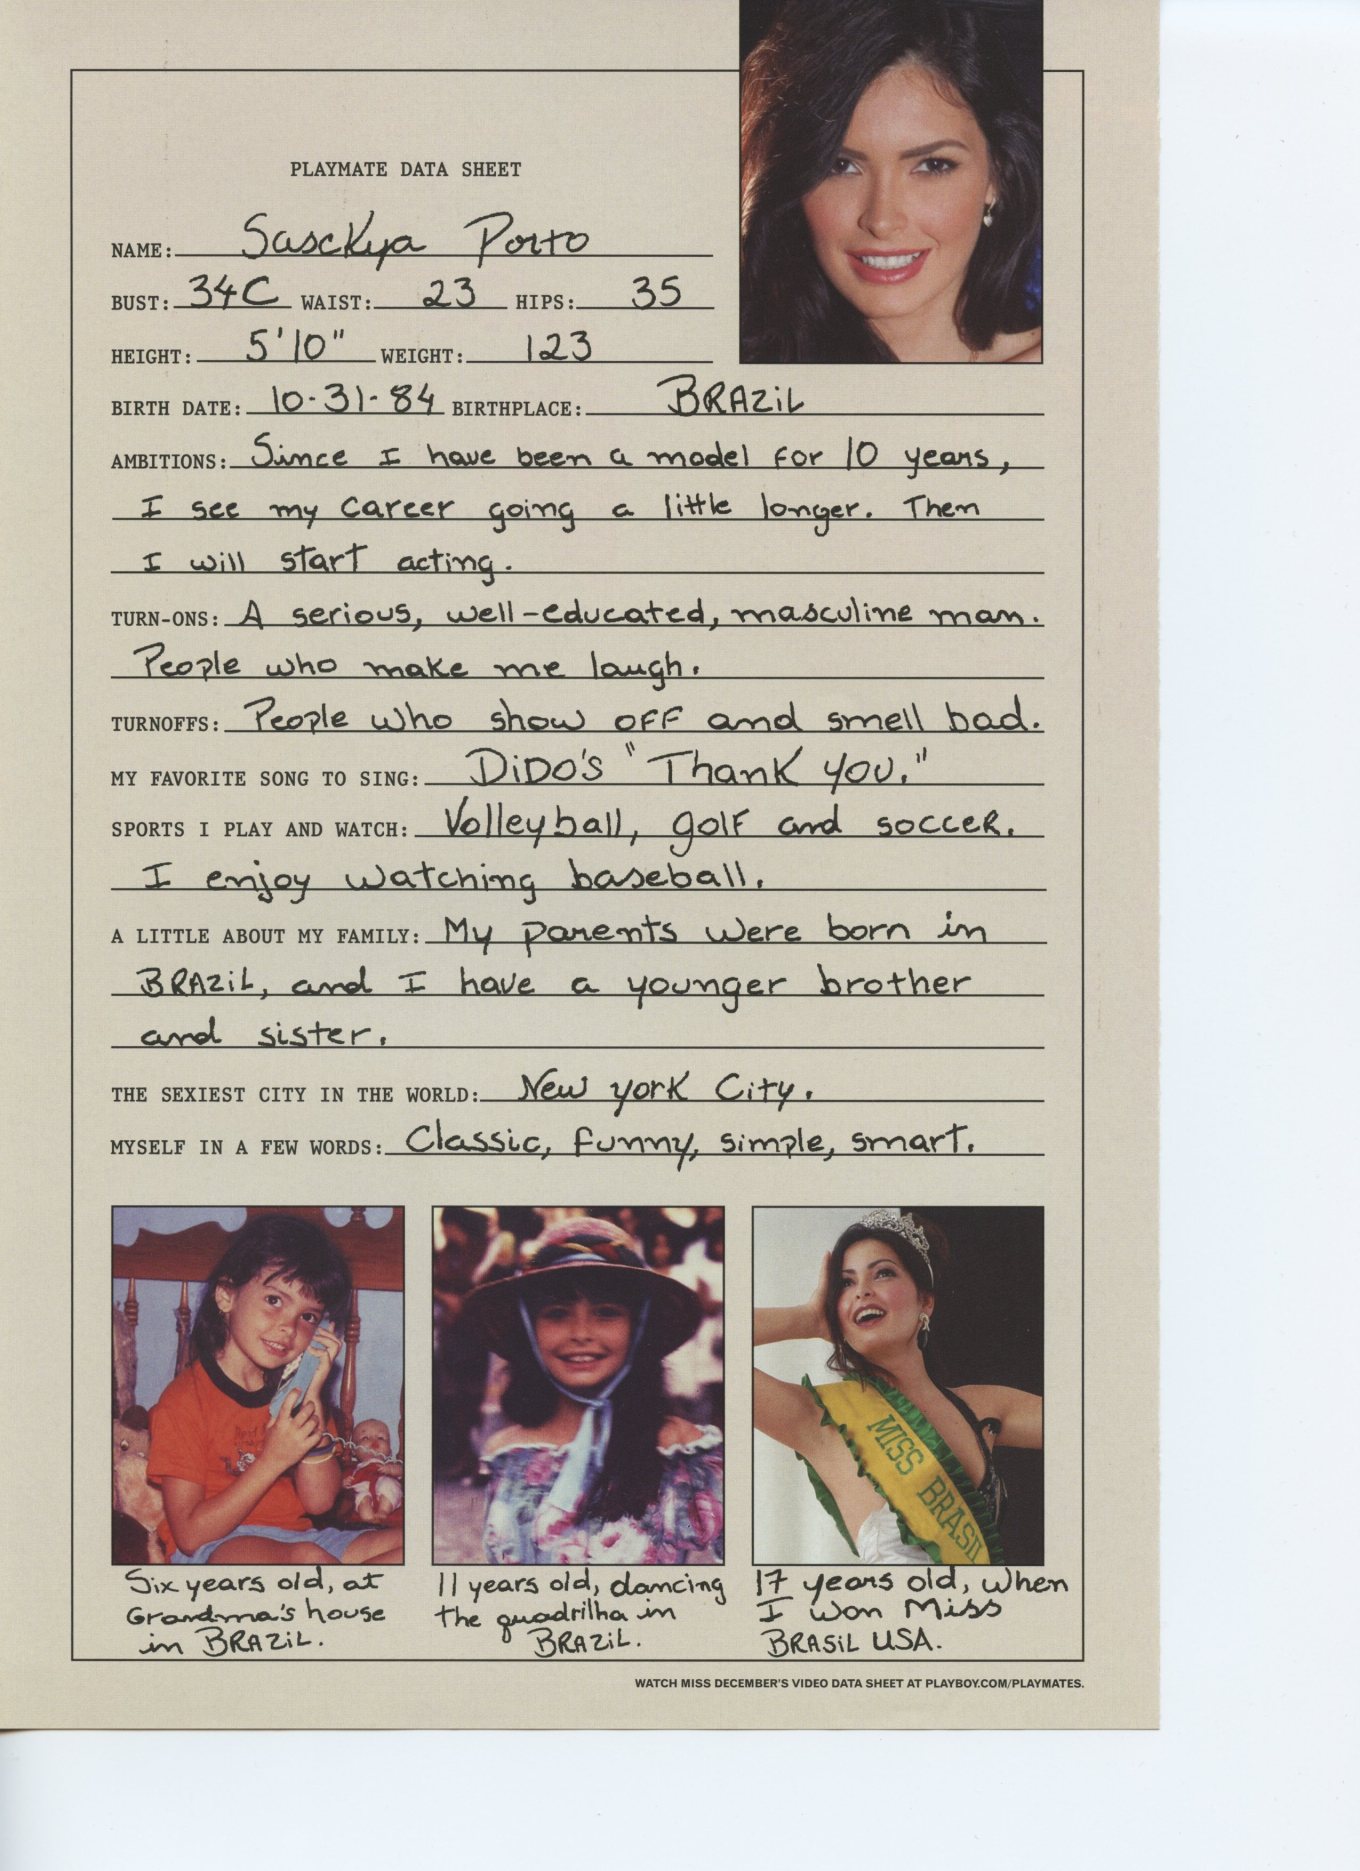 PLAYMATE DATA SHEET
NAME: Sasckya Porto
BUST: 34C WAIST: 23 HIPS: 35
HEIGHT: 5'10" WEIGHT: 123
BIRTH DATE: 10-31-84 BIRTHPLACE: BRAZiL
AMBITIONS: Since I have been a model for 10 years,
I see my career going a little longer. Then
I will start acting.
TURN-ONS: A serious, well-educated, masculine man.
People who make me laugh.
TURNOFFS: People who show off and smell bad.
MY FAVORITE SONG TO SING: DiDO's "Thank you."
SPORTS I PLAY AND WATCH: Volleyball, golf and soccer.
I enjoy watching baseball.
A LITTLE ABOUT MY FAMILY: My parents were born in
BRAZiL, and I have a younger brother
and sister.
THE SEXIEST CITY IN THE WORLD: New York City.
MYSELF IN A FEW WORDS: Classic, funny, simple, smart.
MISS BRASIL
Six years old, at
Grandma's house
in BRAZiL.
11 years old, dancing
the quadrilha in
BRAZiL.
17 years old, when
I won Miss
BRASiL USA.
WATCH MISS DECEMBER'S VIDEO DATA SHEET AT PLAYBOY.COM/PLAYMATES.